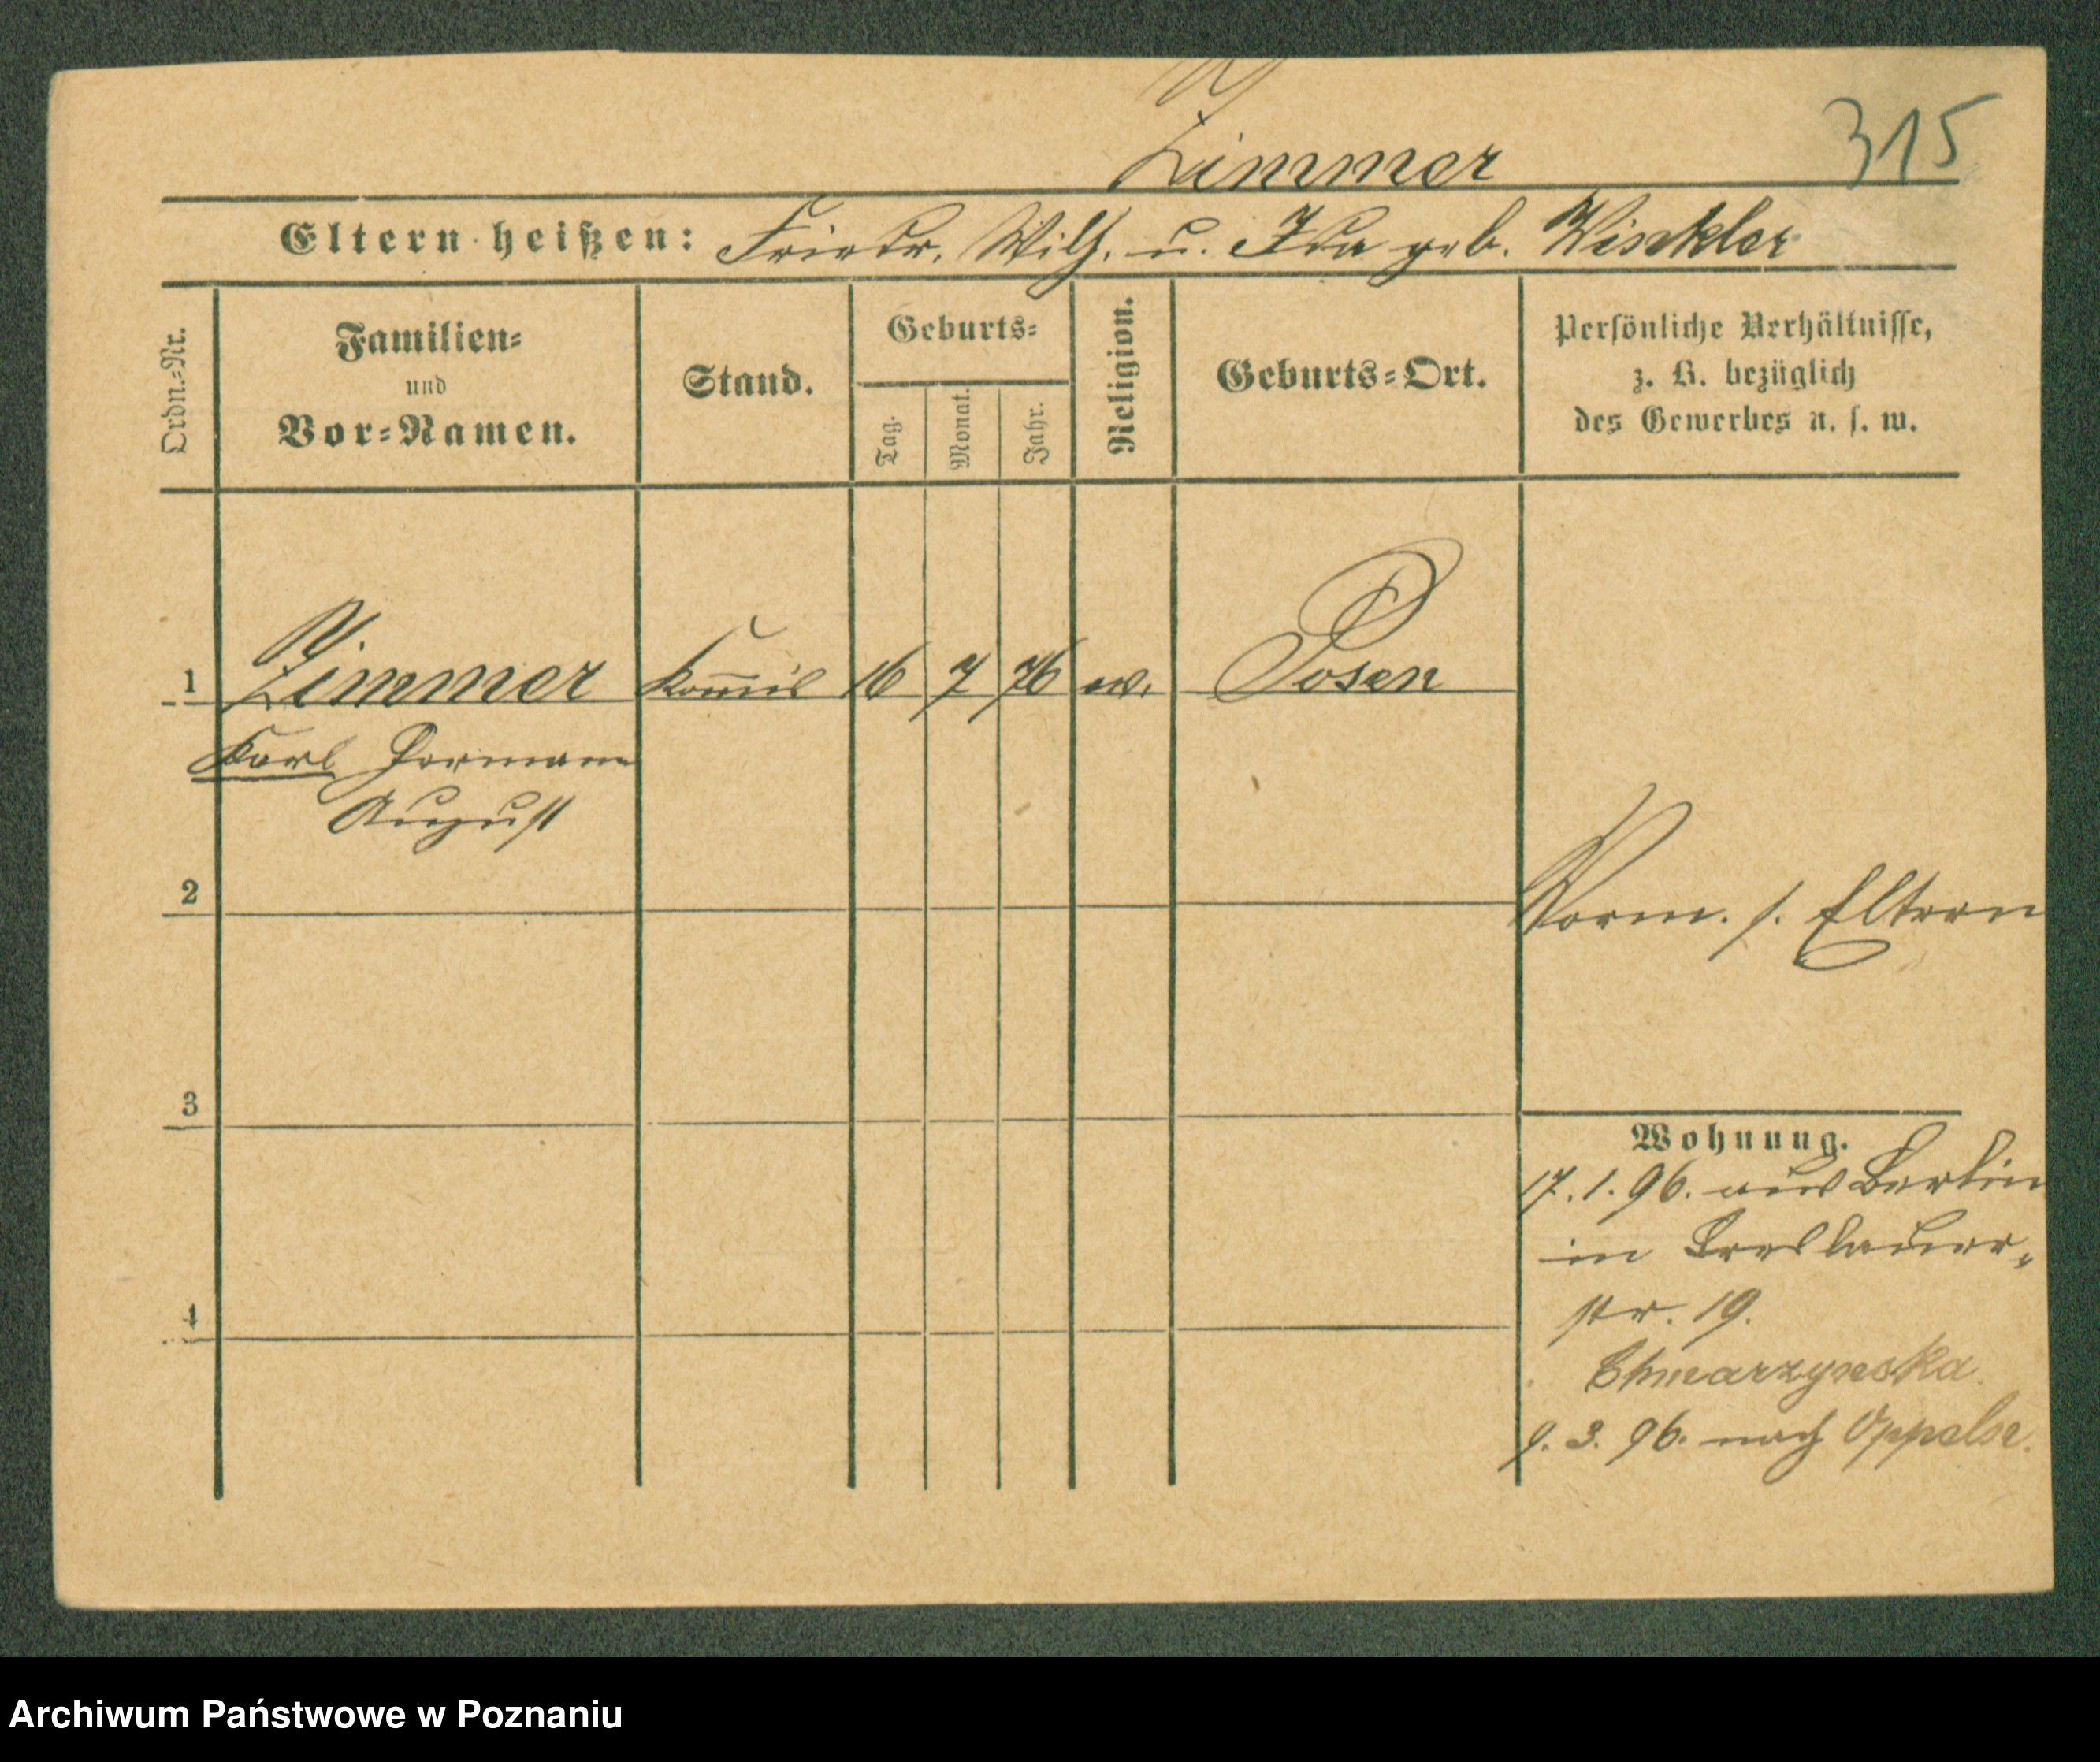 315
Zimmer
Eltern heißen: Friedr. Wilh. u. Ida geb. Winkler
Ordn.=Nr.
Familien=
und
Vor=Namen.
Stand.
Geburts=
Tag.
Monat.
Jahr.
Religion.
Geburts=Ort.
Persönliche Verhältnisse,
z. B. bezüglich
des Gewerbes u. s. w.
1 Zimmer Kom̄is 16 7 76 ev. Posen
Karl Hermann
August
2
Vorm. s. Eltern
3
Wohnung.
17. 1. 96. aus Berlin
in Breslauer=
str. 19.
4
9. 3. 96. nach Oppeln.
Archiwum Państwowe w Poznaniu